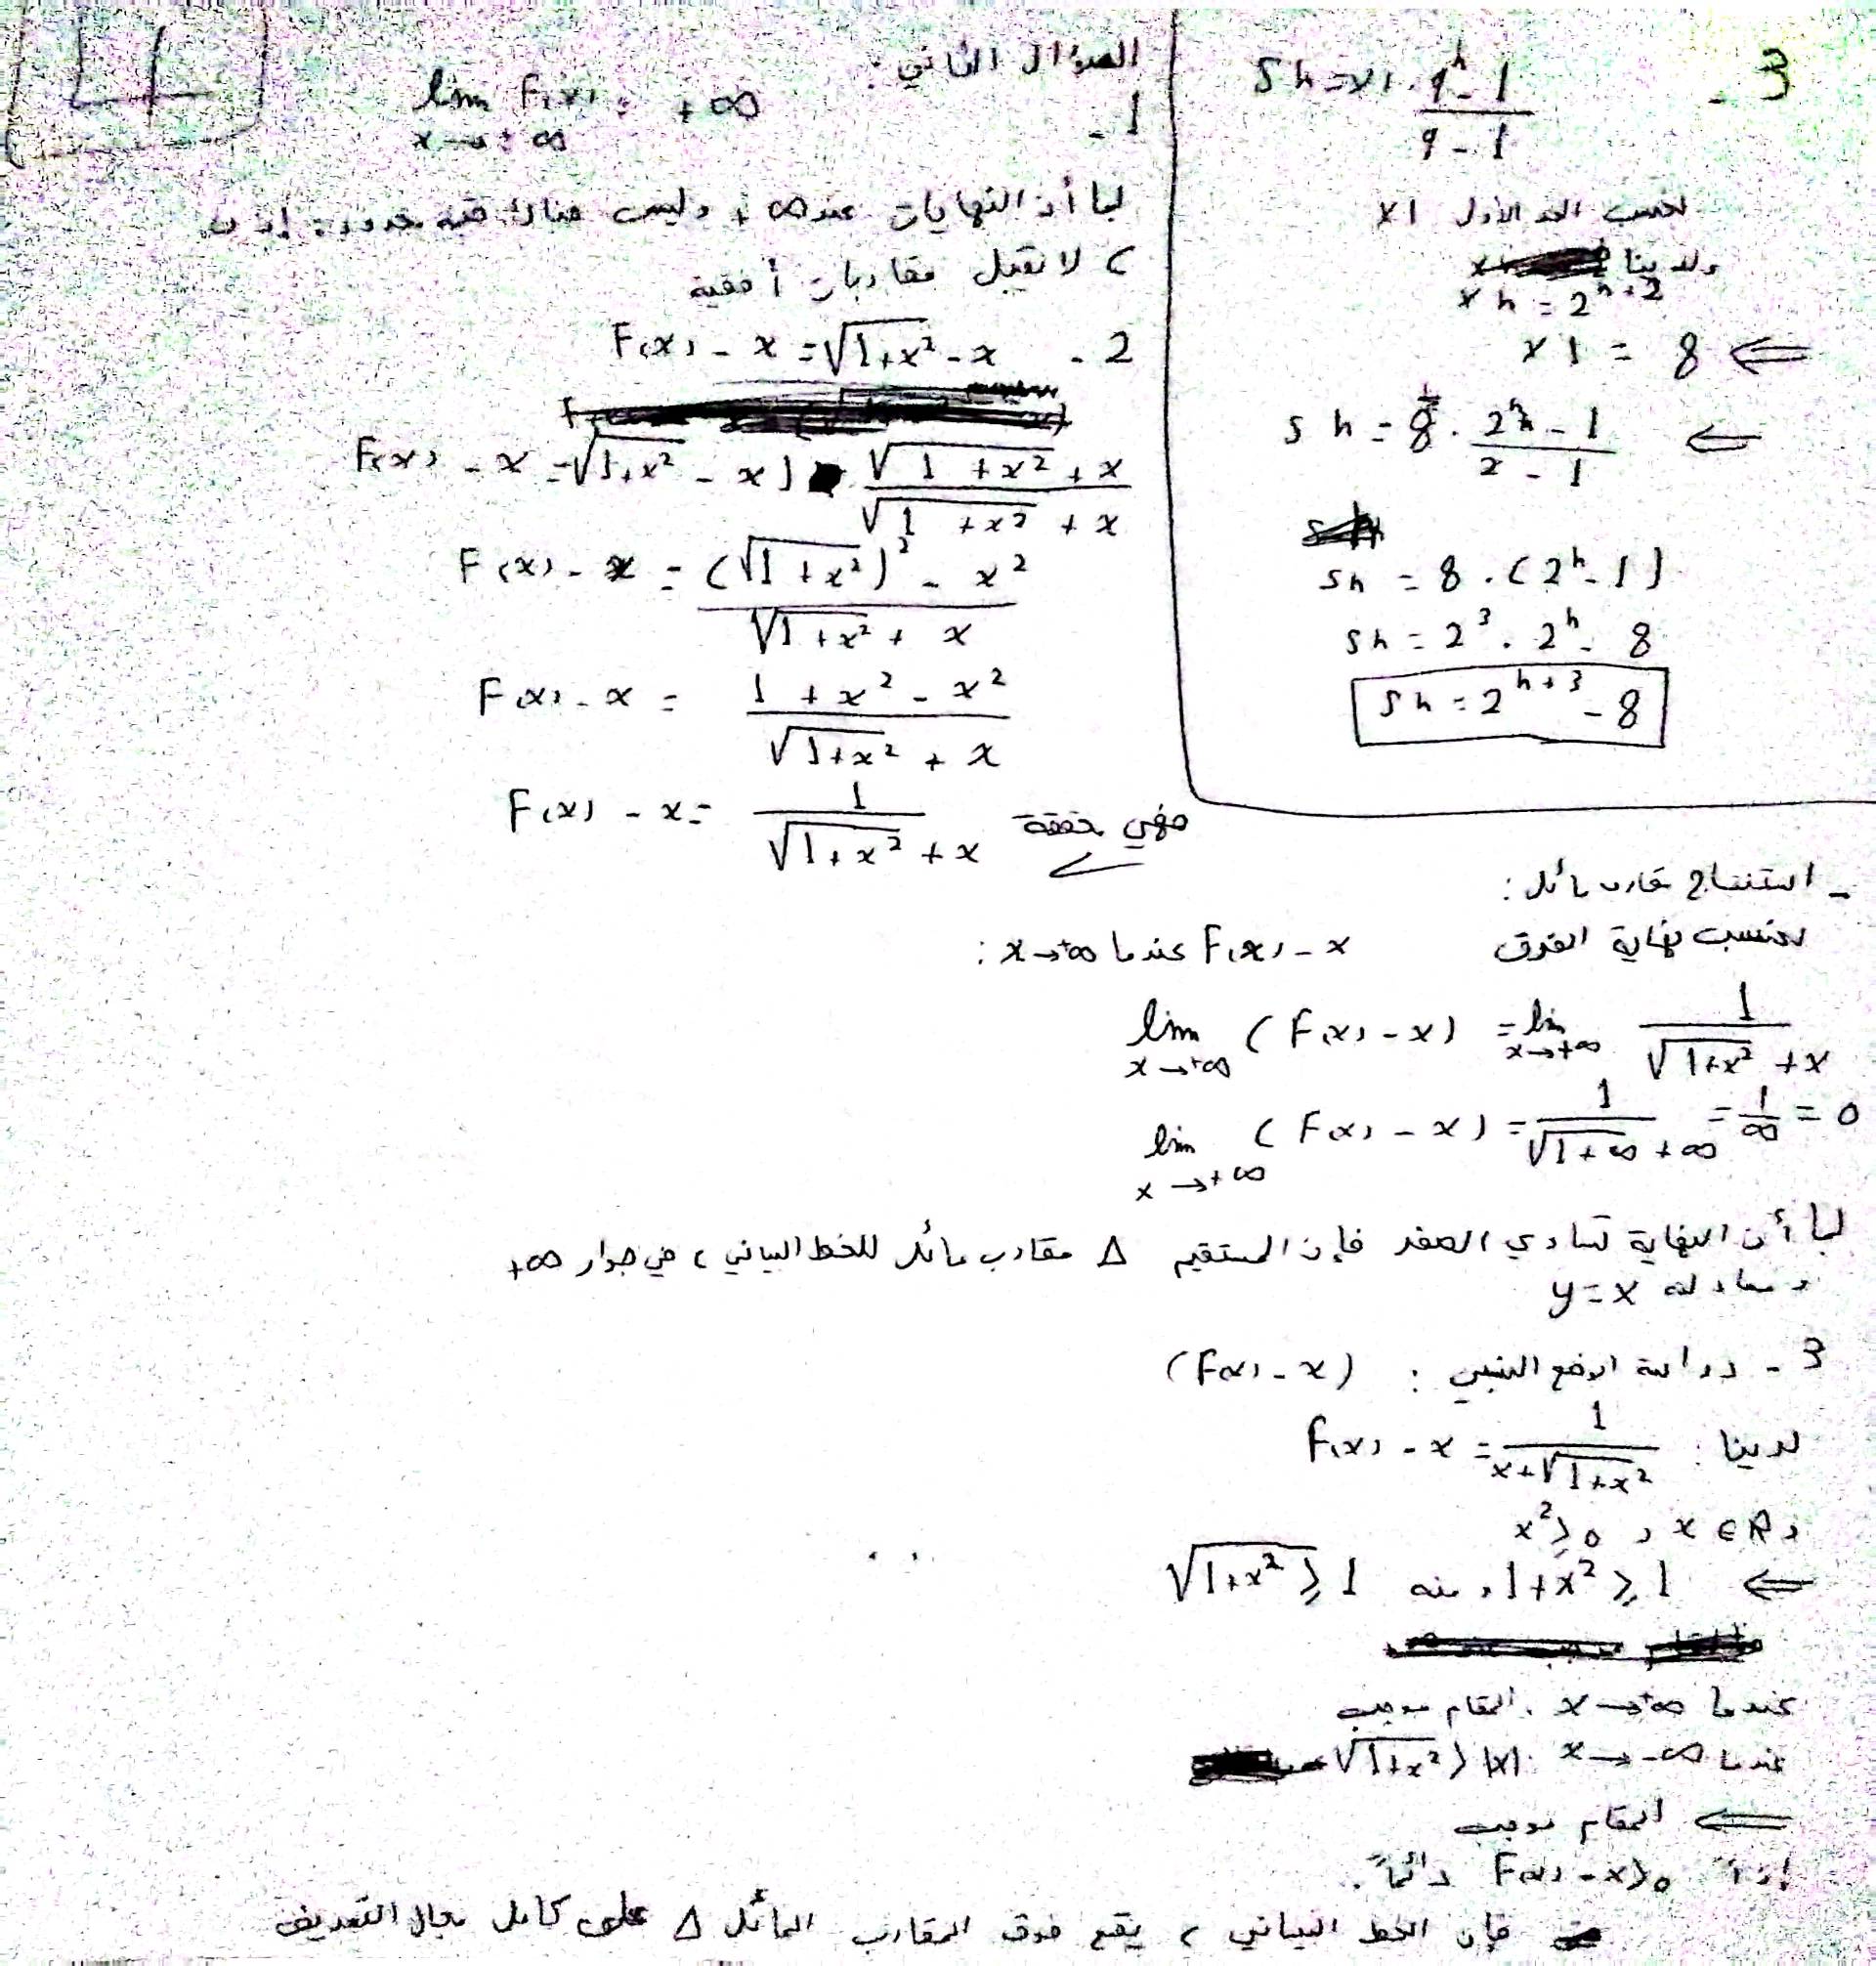 3 -
Sn = x1 . \frac{q^n - 1}{q - 1}
لنحسب الحد الأول x1
ولدينا
xn = 2^{n+2}
⇐ x1 = 8
⇐ Sn = 8 . \frac{2^n - 1}{2 - 1}
Sn = 8 . (2^n - 1)
Sn = 2^3 . 2^n - 8
Sn = 2^{n+3} - 8
السؤال الثاني :
1 - lim_{x→±∞} F(x) = +∞
بما أن النهايات عند ∞ + وليس هناك قيمة محدودة إذن
C لا تقبل مقاربات أفقية
2 - F(x) - x = √(1+x²) - x
F(x) - x = √(1+x²) - x) . \frac{√(1+x²) + x}{√(1+x²) + x}
F(x) - x = \frac{(√(1+x²))² - x²}{√(1+x²) + x}
F(x) - x = \frac{1 + x² - x²}{√(1+x²) + x}
F(x) - x = \frac{1}{√(1+x²) + x} فهي محققة
- استنتاج مقارب مائل :
لنحسب نهاية الفرق F(x) - x عندما x→+∞ :
lim_{x→+∞} (F(x) - x) = lim_{x→+∞} \frac{1}{√(1+x²) + x}
lim_{x→+∞} (F(x) - x) = \frac{1}{√(1+∞) + ∞} = \frac{1}{∞} = 0
بما أن النهاية تساوي الصفر فإن المستقيم Δ مقارب مائل للخط البياني C في جوار +∞
و معادلته y = x
3 - دراسة الوضع النسبي : (F(x) - x)
لدينا : F(x) - x = \frac{1}{x + √(1+x²)}
x ∈ R و x² ≥ 0
⇐ 1 + x² ≥ 1 ومنه √(1+x²) ≥ 1
عندما x→+∞ . المقام موجب
عندما x→-∞ : √(1+x²) > |x|
⇐ المقام موجب
إذاً F(x) - x > 0 دائماً .
فإن الخط البياني C يقع فوق المقارب المائل Δ على كامل مجال التعريف